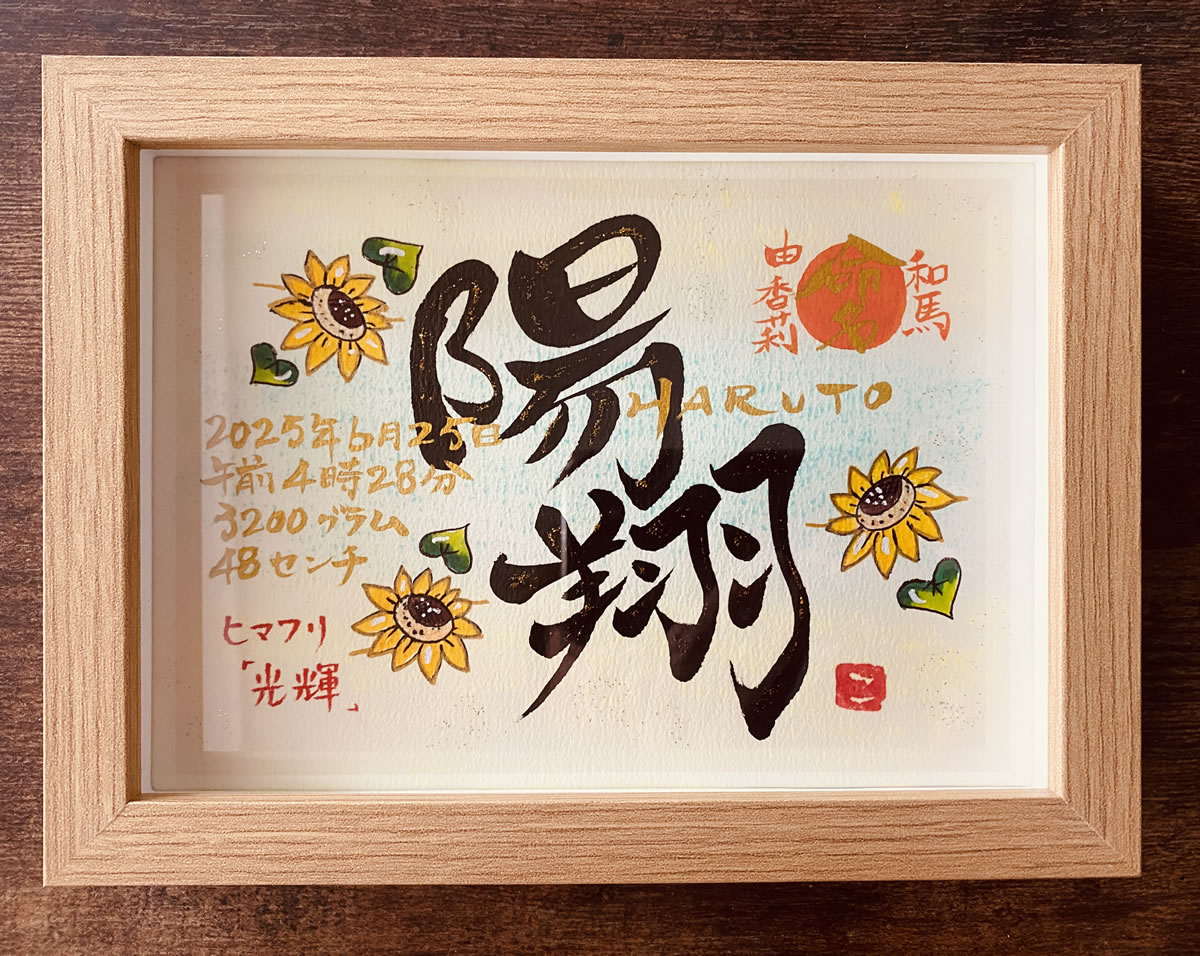 命名
和馬
由香莉
陽翔
HARUTO
2025年6月25日
午前4時28分
3200グラム
48センチ
ヒマワリ
「光輝」